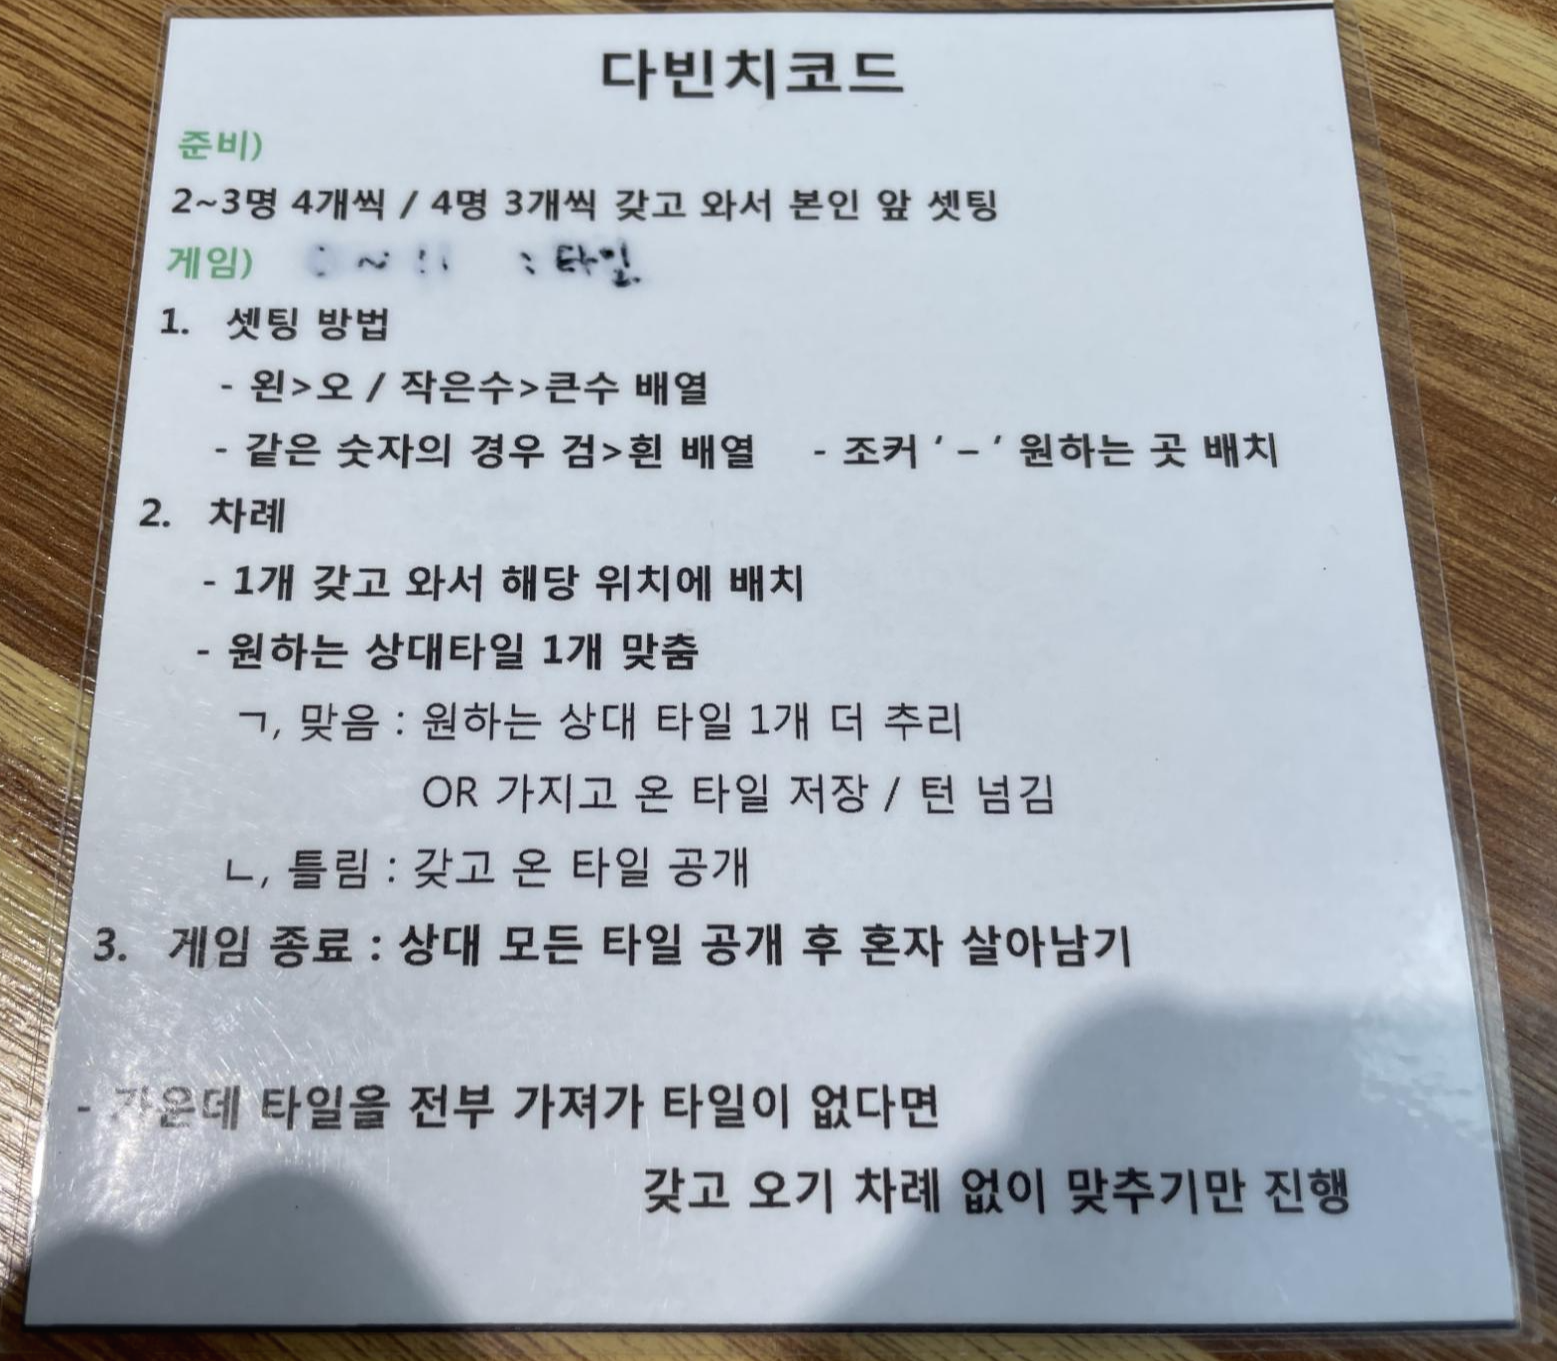 다빈치코드
준비)
2~3명 4개씩 / 4명 3개씩 갖고 와서 본인 앞 셋팅
게임) ~ : 타일
1. 셋팅 방법
- 왼>오 / 작은수>큰수 배열
- 같은 숫자의 경우 검>흰 배열 - 조커 ‘ – ’ 원하는 곳 배치
2. 차례
- 1개 갖고 와서 해당 위치에 배치
- 원하는 상대타일 1개 맞춤
ㄱ, 맞음 : 원하는 상대 타일 1개 더 추리
OR 가지고 온 타일 저장 / 턴 넘김
ㄴ, 틀림 : 갖고 온 타일 공개
3. 게임 종료 : 상대 모든 타일 공개 후 혼자 살아남기
- 가운데 타일을 전부 가져가 타일이 없다면
갖고 오기 차례 없이 맞추기만 진행